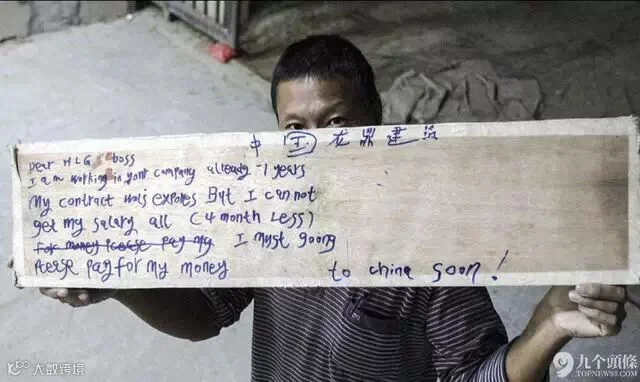 中国 龙鼎建筑
Dear HLG boss
I am working in your company already -1 years
My contract was expores But I can not
get my salary all (4 month Less)
for money Please pay my I must goong
Please Pay for my money to china soon!
大数跨境
九个頭條
TOPNEWS9.COM